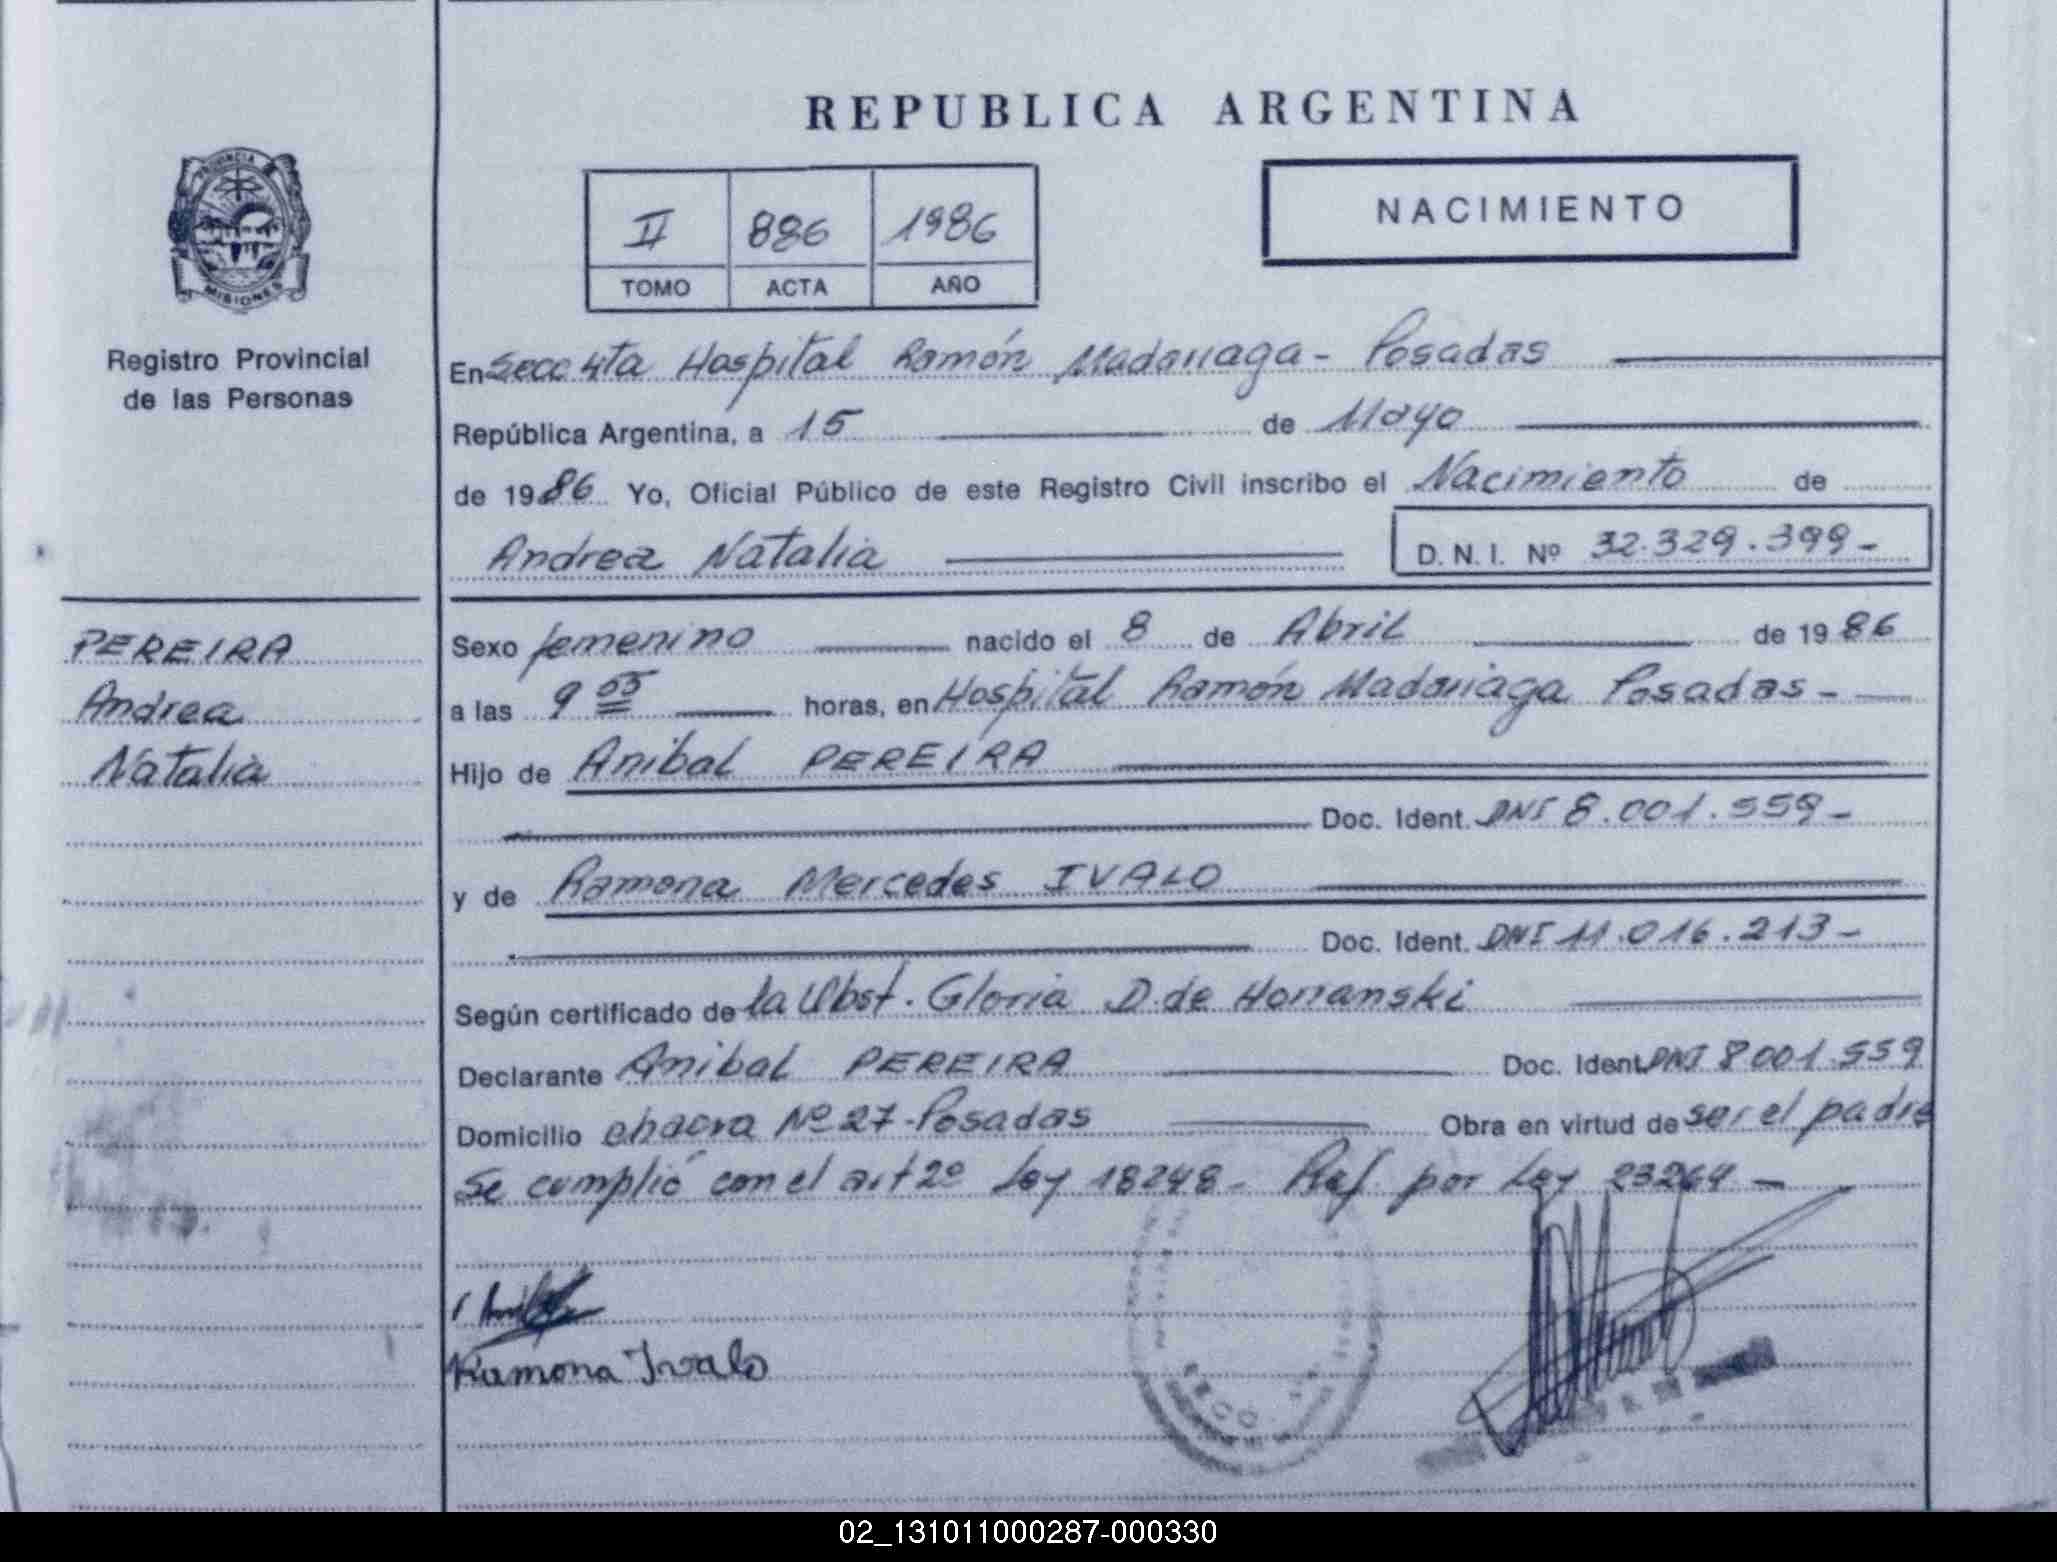 REPUBLICA ARGENTINA
PROVINCIA DE
MISIONES
Registro Provincial
de las Personas
II 886 1986
TOMO ACTA AÑO
NACIMIENTO
En Secc 4ta Hospital Ramón Madariaga - Posadas
República Argentina, a 15 de Mayo
de 1986 Yo, Oficial Público de este Registro Civil inscribo el Nacimiento de
Andrea Natalia D. N. I. Nº 32.329.399-
PEREIRA
Andrea
Natalia
Sexo femenino nacido el 8 de Abril de 1986
a las 9 55 horas, en Hospital Ramón Madariaga Posadas -
Hijo de Anibal PEREIRA
Doc. Ident. DNI 8.001.559-
y de Ramona Mercedes IVALO
Doc. Ident. DNI 11.016.213-
Según certificado de la Obst. Gloria D. de Horianski
Declarante Anibal PEREIRA Doc. Ident. DNI 8001.559
Domicilio chacra Nº 27-Posadas Obra en virtud de ser el padre
Se cumplió con el art 2º Ley 18248- Ref. por Ley 23264 -
Ramona Ivalo
02_131011000287-000330